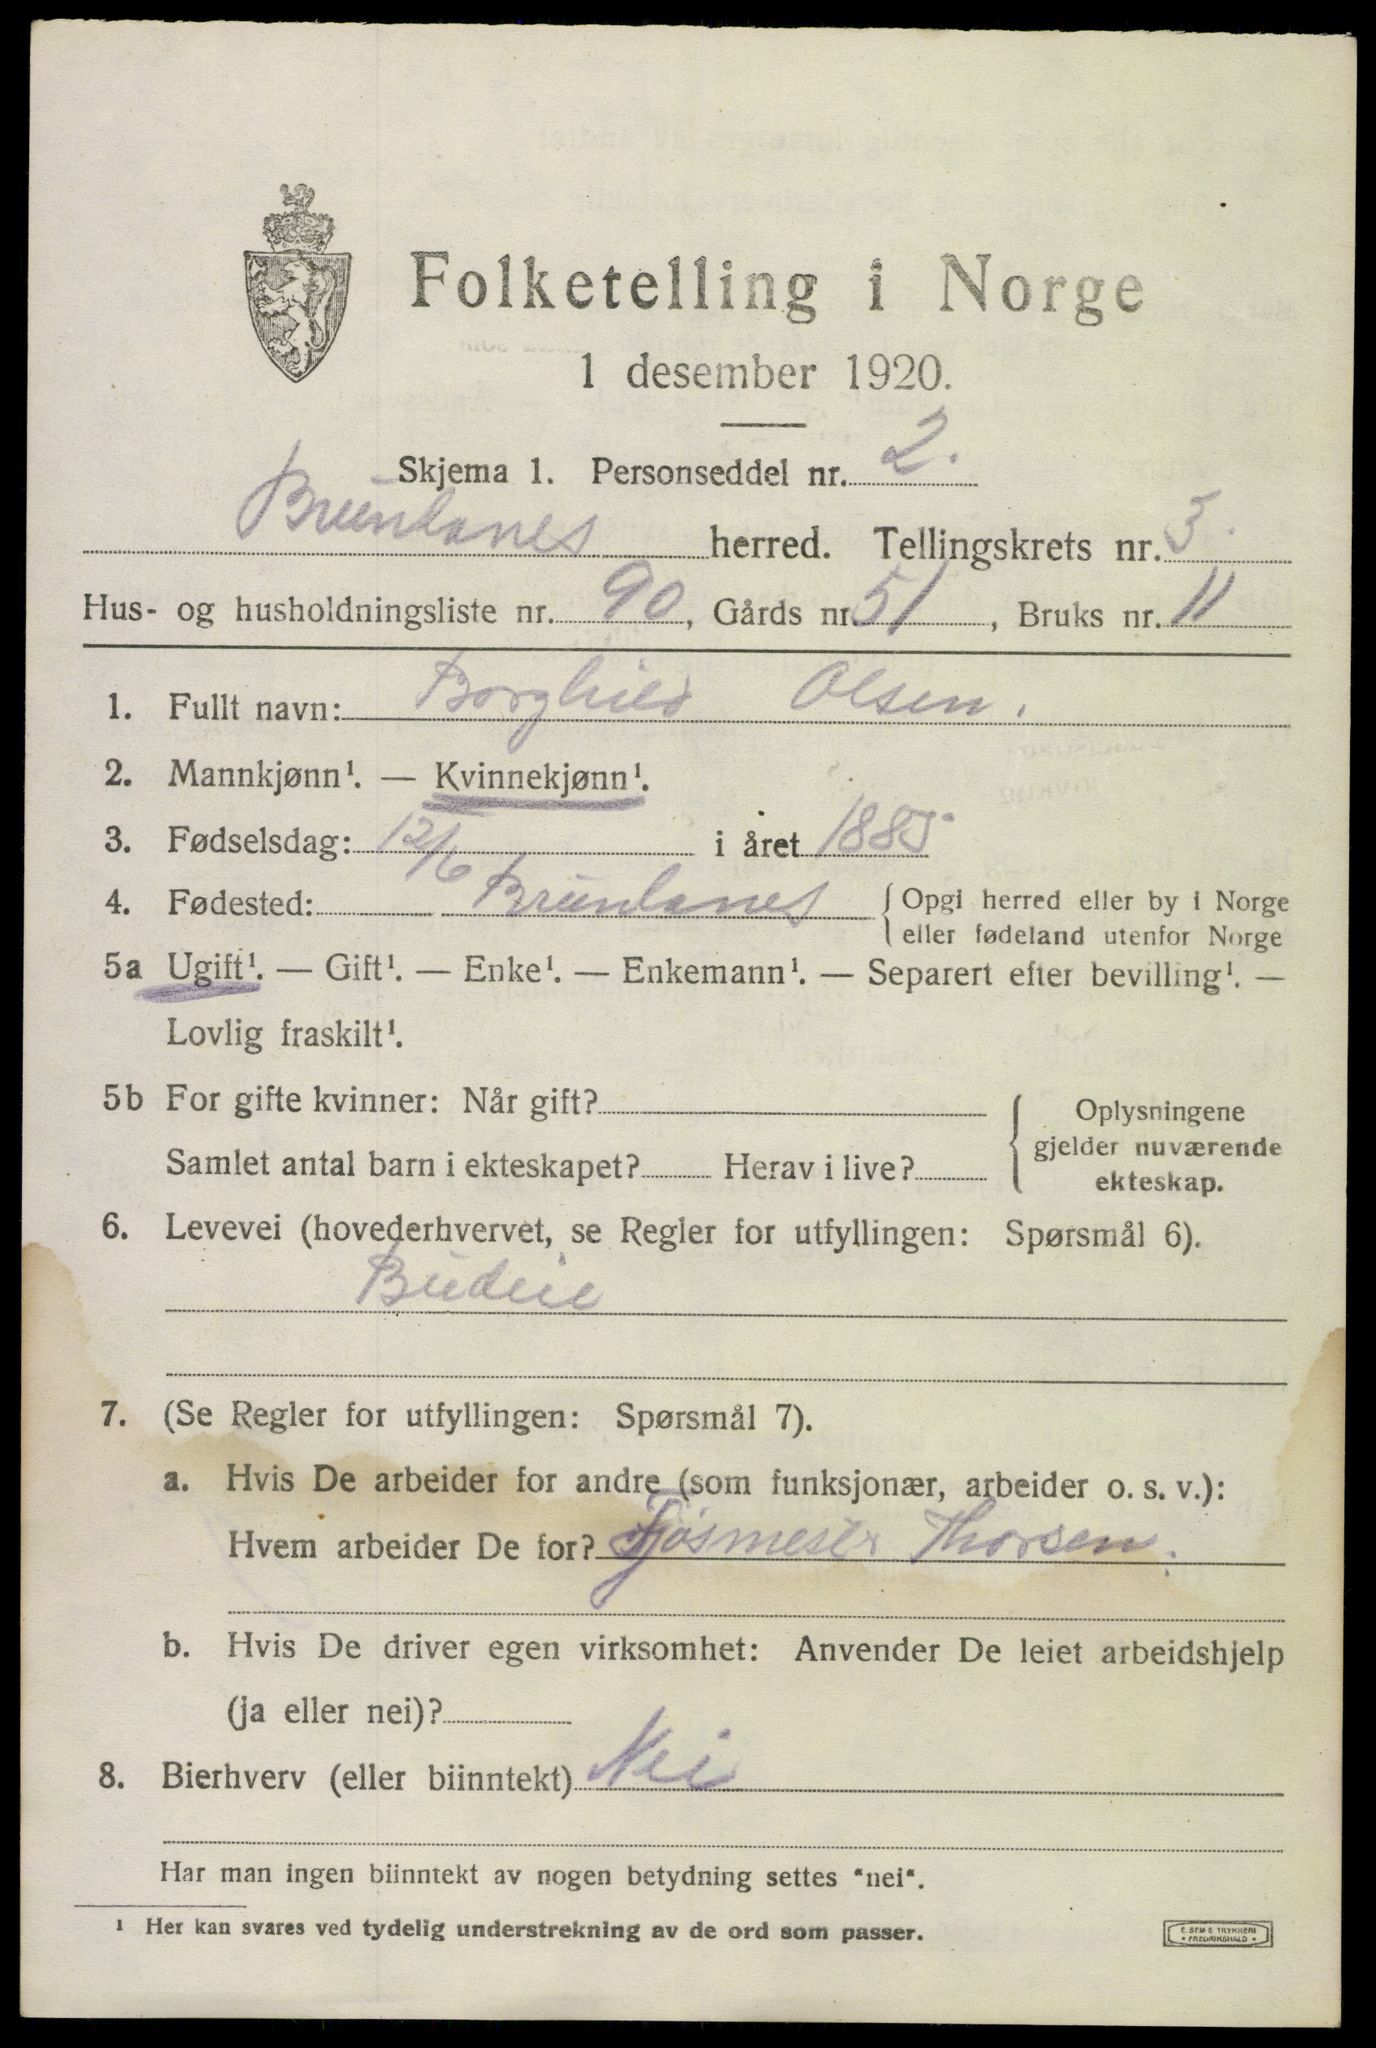 Folketelling i Norge
1 desember 1920.
Skjema 1. Personseddel nr. 2.
Brunlanes herred. Tellingskrets nr. 5.
Hus- og husholdningsliste nr. 90, Gårds nr. 51, Bruks nr. 11
1. Fullt navn: Borghild Olsen.
2. Mannkjønn¹. — Kvinnekjønn¹.
3. Fødselsdag: 12/6 i året 1885
4. Fødested: Brunlanes { Opgi herred eller by i Norge
eller fødeland utenfor Norge
5a Ugift¹. — Gift¹. — Enke¹. — Enkemann¹. — Separert efter bevilling¹. —
Lovlig fraskilt¹.
5b For gifte kvinner: Når gift?
Samlet antal barn i ekteskapet? Herav i live?
{ Oplysningene
gjelder nuværende
ekteskap.
6. Levevei (hovederhvervet, se Regler for utfyllingen: Spørsmål 6).
Budeie
7. (Se Regler for utfyllingen: Spørsmål 7).
a. Hvis De arbeider for andre (som funksjonær, arbeider o. s. v.):
Hvem arbeider De for? Fjøsmester Thorsen.
b. Hvis De driver egen virksomhet: Anvender De leiet arbeidshjelp
(ja eller nei)?
8. Bierhverv (eller biinntekt) Nei
Har man ingen biinntekt av nogen betydning settes "nei".
¹ Her kan svares ved tydelig understrekning av de ord som passer.
E. SEM S TRYKKERI
• FREDRIKSHALD •